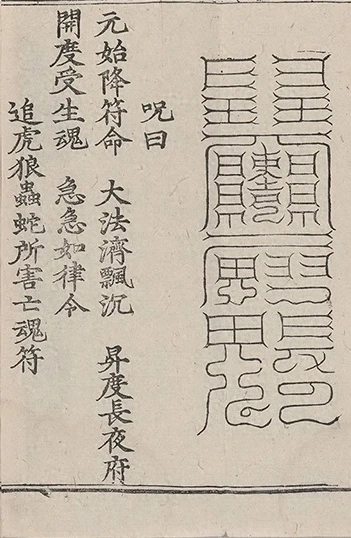 呪曰
元始降符命　大法濟飄沉　昇度長夜府
開度受生魂　急急如律令
追虎狼蟲蛇所害亡魂符